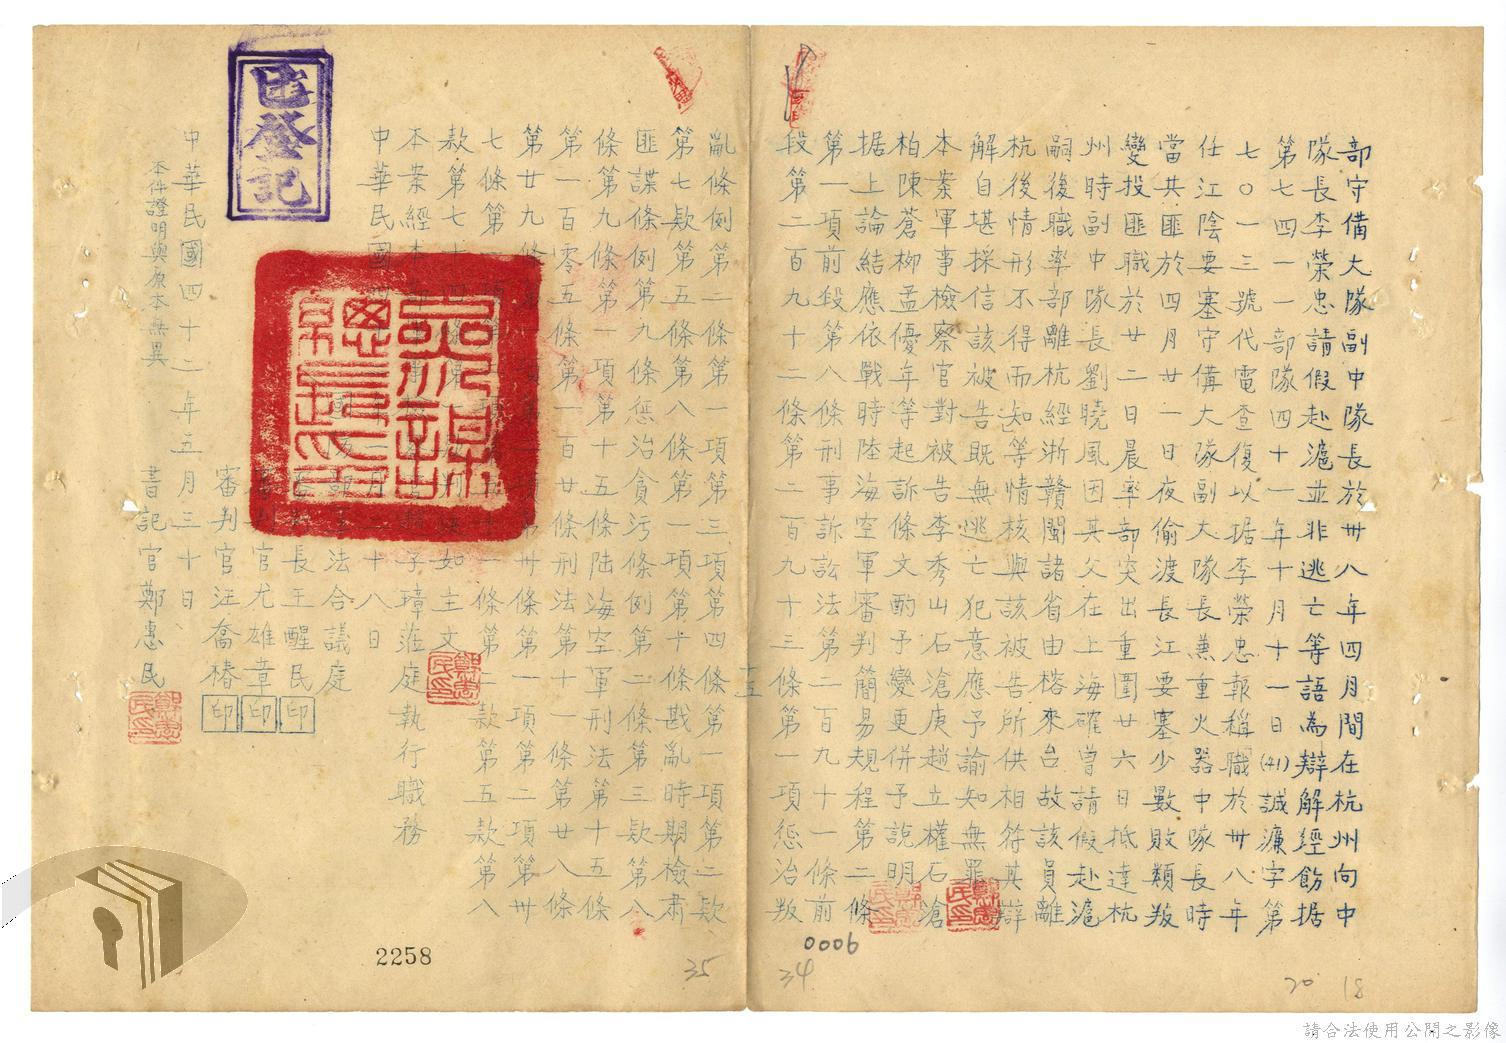 部守備大隊副中隊長於卅八年四月間在杭州向中
隊長李榮忠請假赴滬並非逃亡等語為辯解經飭据
第七四一一部隊四十一年十月十一日(41)誠濂字第
七〇一三號代電查復以据李榮忠報稱職於卅八年
任江陰要塞守備大隊副大隊長兼重火器中隊長時
當共匪於四月廿一日夜偷渡長江要塞少數敗類叛
變投匪職於廿二日晨率部突出重圍廿六日抵達杭
州時副中隊長劉曉風因其父在上海確曾請假赴滬
嗣後職率部離杭經浙贛閩諸省由榕來台故該員離
杭後情形不得而知等情核與該被告所供相符其辯
解自堪採信該被告既無逃亡犯意應予諭知無罪
本案軍事檢察官對被告李秀山石滄庚趙立權石滄
柏陳蒼柳孟優年等起訴條文酌予變更併予說明
据上論結應依戰時陸海空軍審判簡易規程第二條
第一項前段第八條刑事訴訟法第二百九十一條前
段第二百九十二條第二百九十三條第一項懲治叛
亂條例第二條第一項第三項第四條第一項第二款
第七款第五條第八條第一項第十條戡亂時期檢肅
匪諜條例第九條懲治貪污條例第二條第三款第八
條第九條第一項第十五條陸海空軍刑法第十五條
第一百零五條第一百廿條刑法第十一條第廿八條
第廿九條第 項 第卅條第一項第二項第卅
七條第 項 條第二款第五款第八
款第七十四條第 款判決如主文
本案經本部軍事檢察官 子璋蒞庭執行職務
中華民國四十 年 月二十八日
國防部軍法合議庭
審判長王醒民 印
審判官尤雄章 印
審判官汪喬椿 印
中華民國四十二年五月三十日
本件證明與原本無異
書記官鄭惠民
鄭惠民印
已登記
2258
35
0006
34
20
18
請合法使用公開之影像